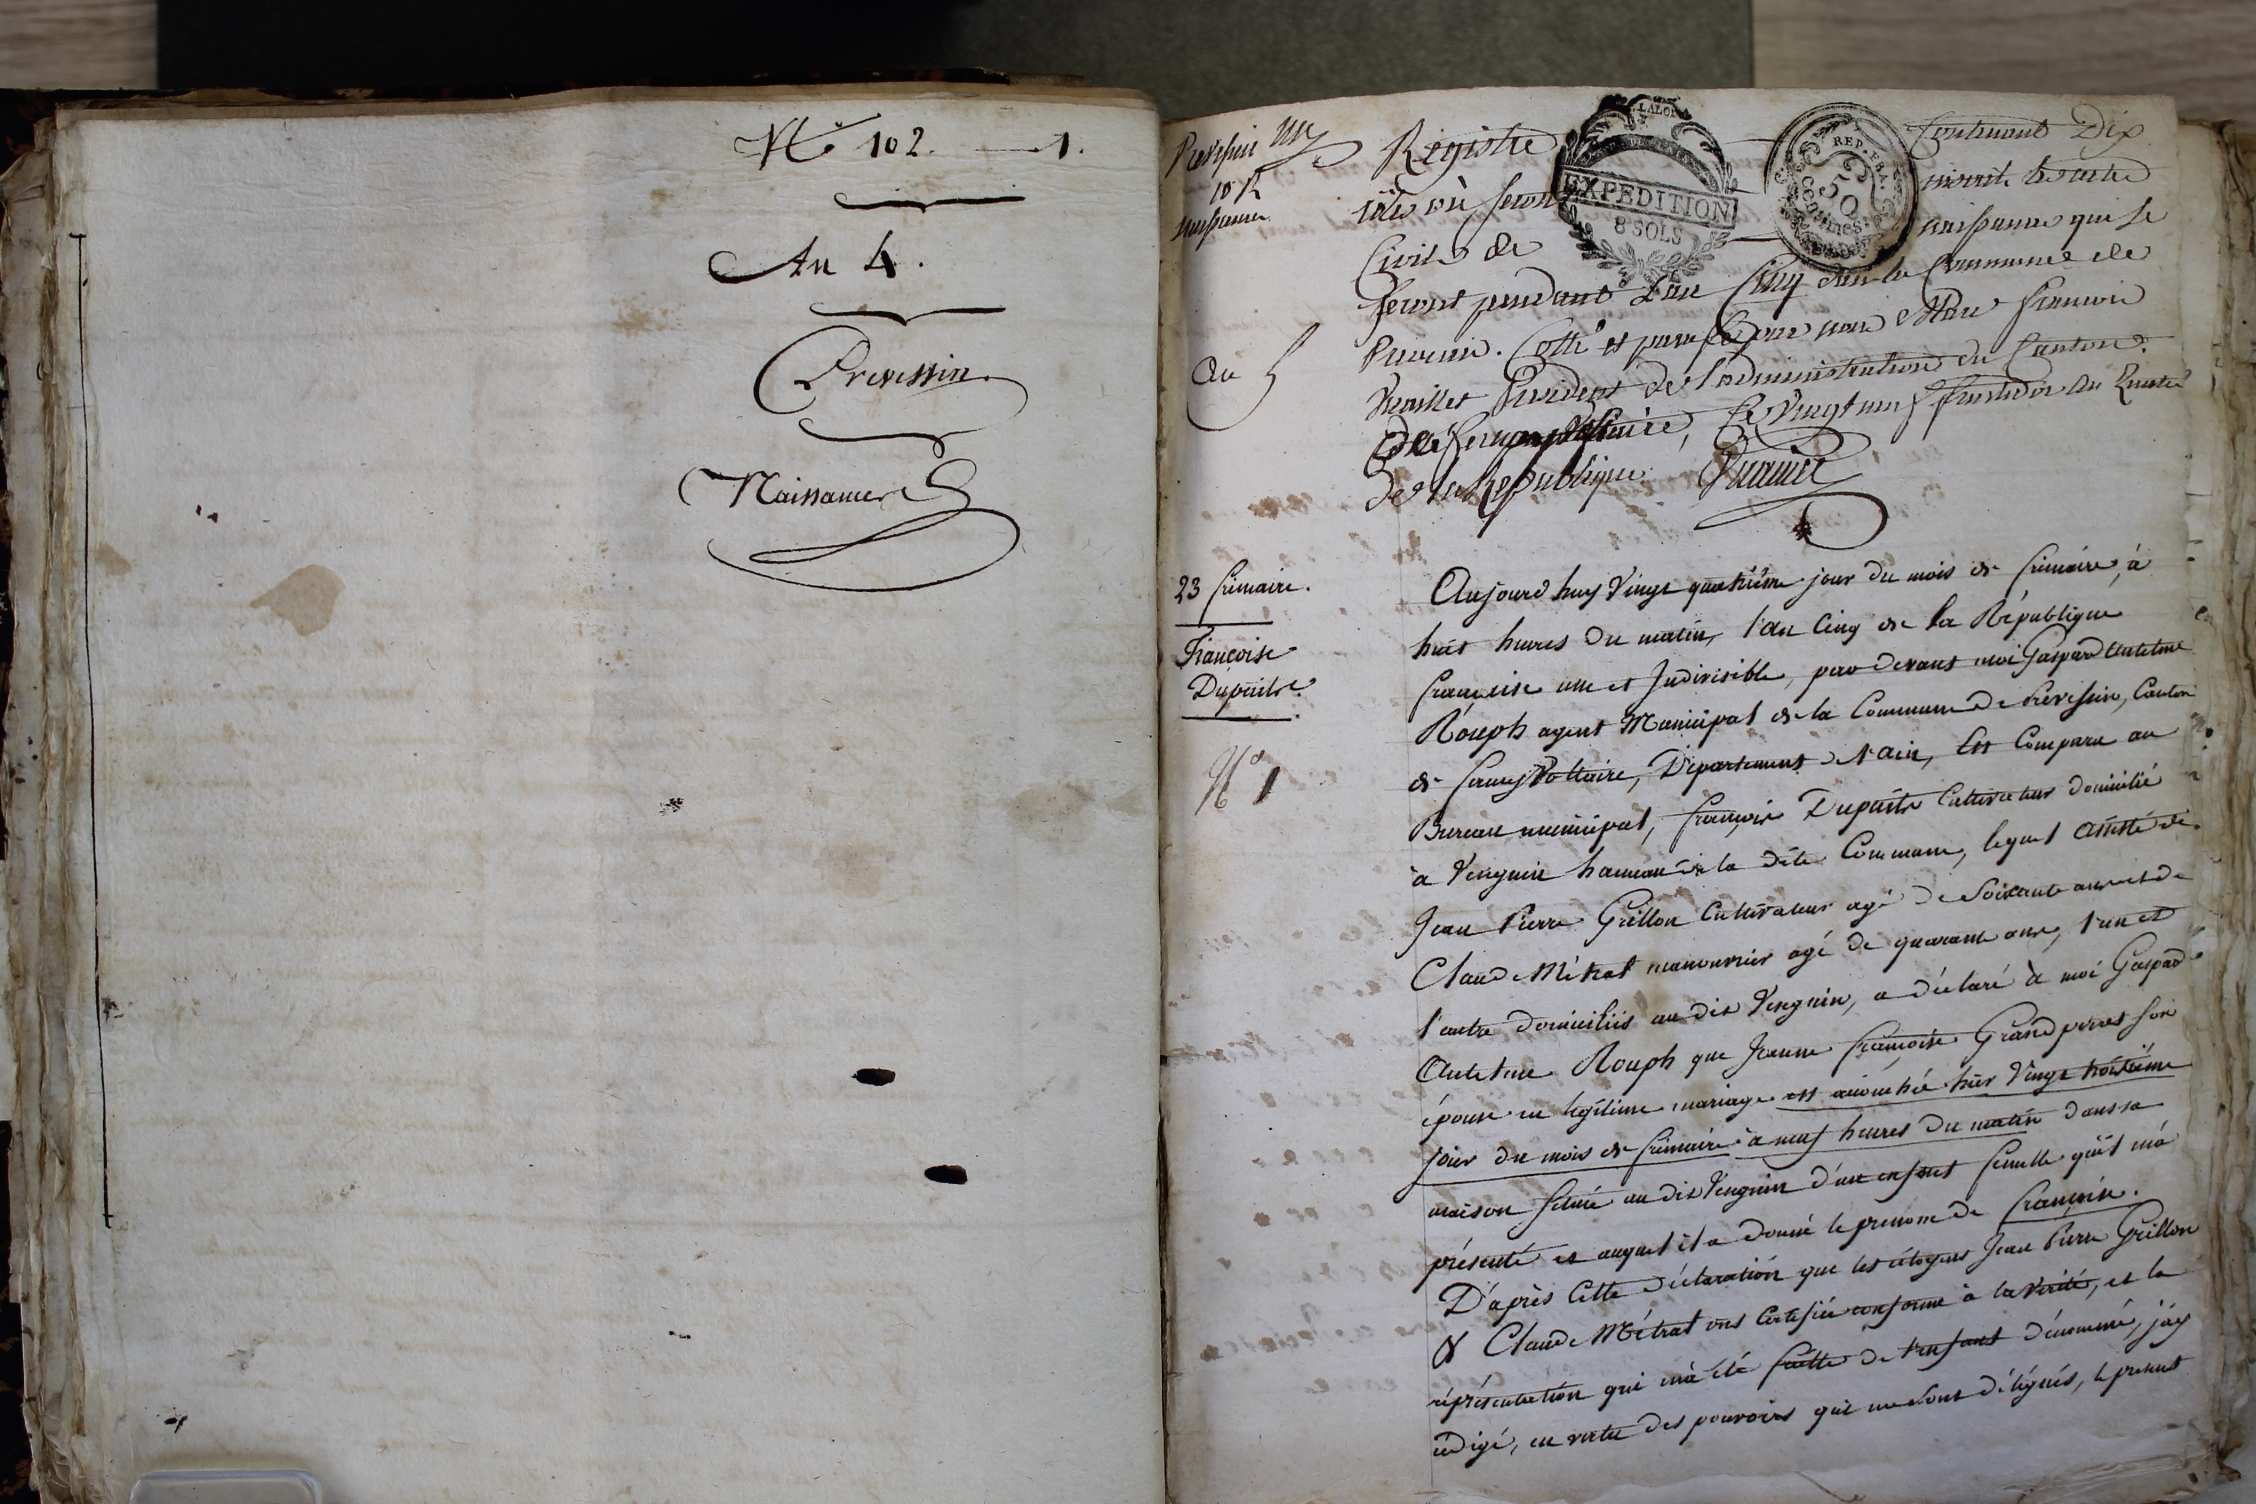 N° 102. 1.
An 4.
Prevessin
Naissances
Prevessin
10 R
naissances
An 5
Registre Contenant Dix
rôles où seront inscrits les actes
Civils de naissances qui se
feront pendant l'an Cinq dans la Commune de
Prevessin. Cotté et paraphé par nous Marc François
President de l'administration du Canton
de ferney voltaire, Le Vingt un fructidor an Quatre
de la Republique.
LALO
EXPEDITION
8 SOLS
REP. FRA.
50
Centimes
23 frimaire.
Françoise
Dupuits.
N° 1
Aujourd'huy Vingt quatrième jour du mois de frimaire, à
huit heures du matin, l'an Cinq de la République
française une et Indivisible, par devant moi Gaspard Antelme
Rouph agent Municipal de la Commune de Prevessin, Canton
de ferney Voltaire, Département de l'ain, Est Comparu au
Bureau municipal, françois Dupuits Cultivateur domicilié
à Vesgnin hameau de la dite Commune, lequel assisté de
Jean Pierre Grillon Cultivateur agé de Soixante ans et de
Claude Métral manouvrier agé de quarante ans, l'un et
l'autre domiciliés au dit Vesgnin, a déclaré à moi Gaspard
Antelme Rouph que Jeanne françoise Grandperret son
épouse en légitime mariage est accouchée hier Vingt troisième
jour du mois de frimaire à neuf heures du matin dans sa
maison située au dit Vesgnin d'un enfant femelle qu'il m'a
présenté et auquel il a donné le prenom de françoise.
D'après Cette déclaration que les citoyens Jean Pierre Grillon
& Claude Métral ont Certifiée conforme à la vérité, et la
représentation qui m'a été faitte de l'enfant dénommé, j'ay
rédigé, en vertu des pouvoirs qui me sont délégués, le présent